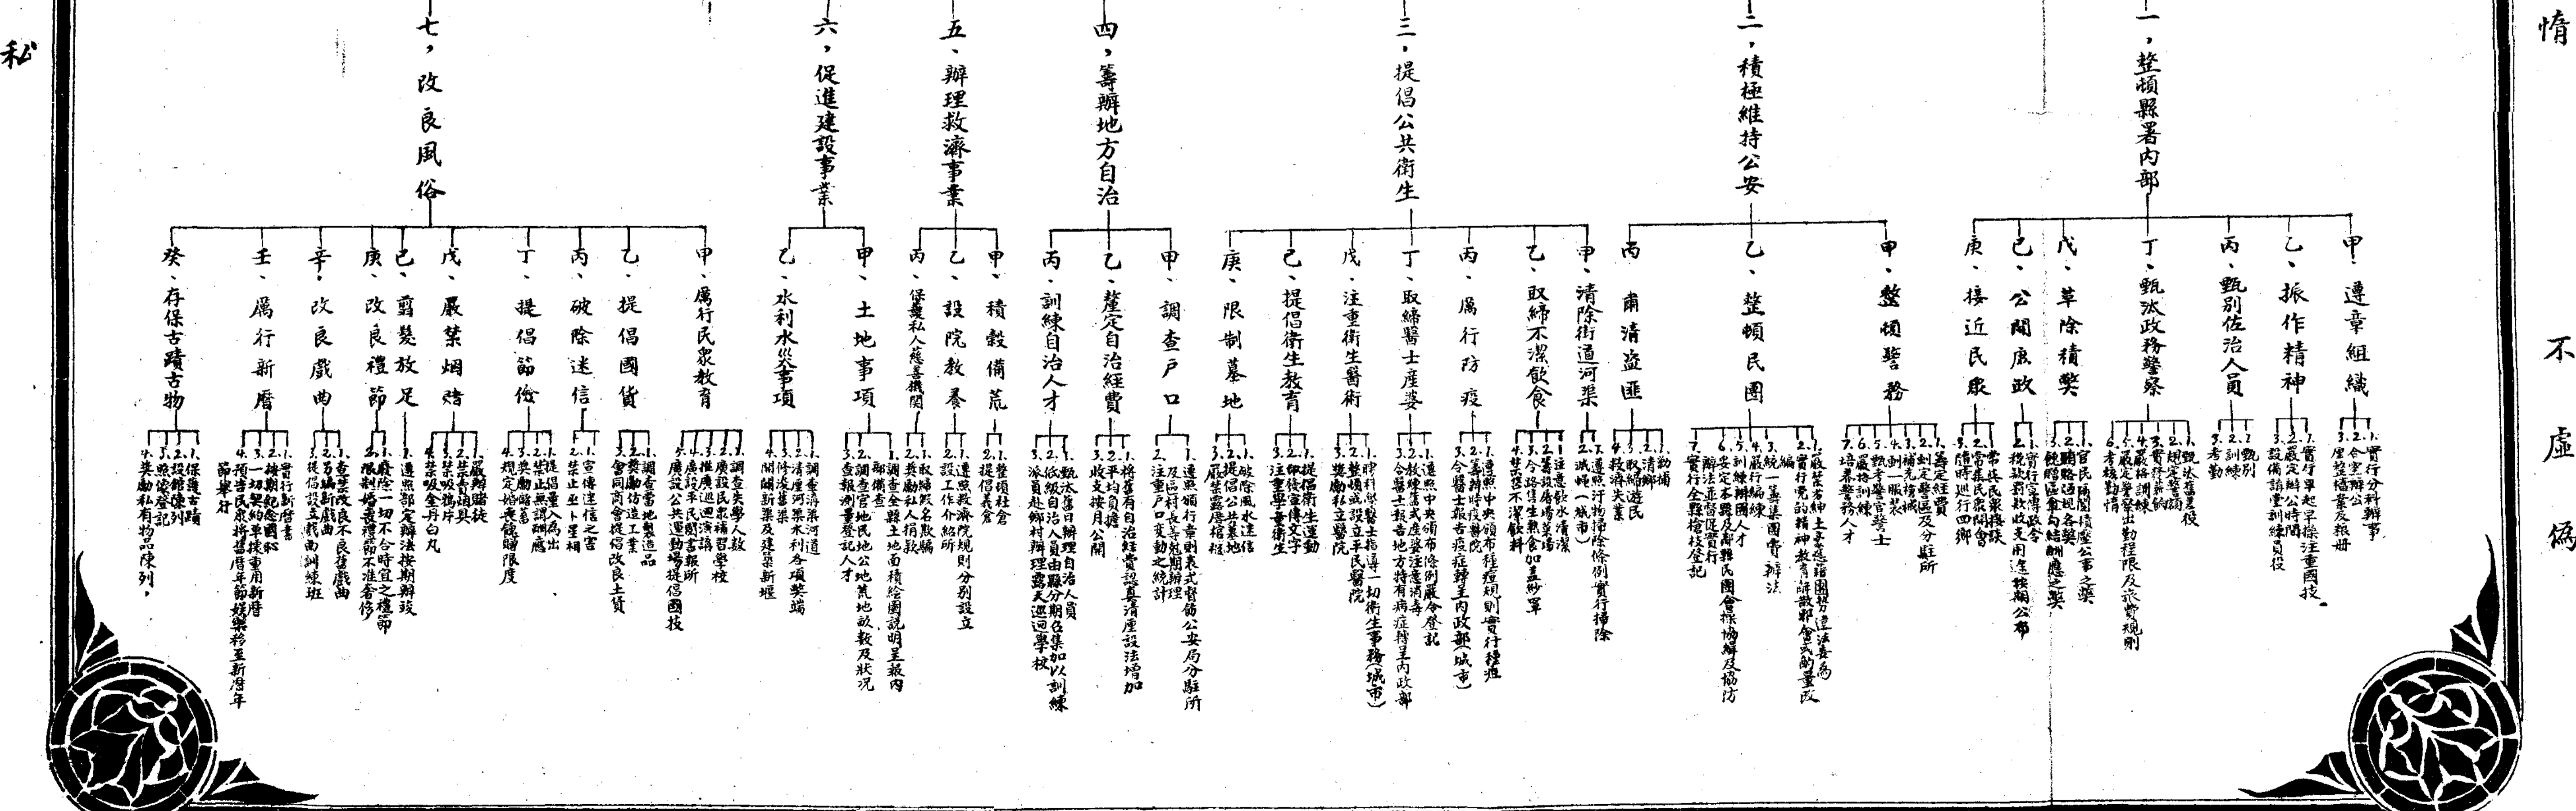 惰
不
虛
偽
一，整頓縣署內部
甲、遵章組織
1.實行分科辦事
2.合室辦公
3.厘整檔案及報冊
乙、振作精神
1.實行早起早操注重國技
2.嚴定辦公時間
3.設備講堂訓練員役
丙、甄別佐治人員
1.甄別
2.訓練
3.考勤
丁、甄汰政務警察
1.甄汰舊差役
2.規定警額
3.實給薪餉
4.嚴格訓練
5.嚴定差警出勤程限及旅費規則
6.考核勤惰
戊、革除積弊
1.官民隔閡積壓公事之弊
2.賄賂通規各弊
3.餽贈區會勾結酬應之弊
己、公開庶政
1.實行宣傳政令
2.稅款罰款收支用途按期公布
庚、接近民眾
1.常與民眾接談
2.常集民眾開會
3.隨時巡行四鄉
二，積極維持公安
甲、整頓警務
1.籌定經費
2.劃定警區及分駐所
3.補充槍械
4.劃一服裝
5.甄考警官警士
6.嚴格訓練
7.培養警務人才
乙、整頓民團
2.實行黨的精神教育
3.統一籌集團費辦法
4.嚴行編練
5.訓練辦團人才
6.安定本縣及鄰縣民團會操協緝及協防
辦法並督促實行
7.實行全縣槍枝登記
丙、肅清盜匪
1.勦捕
2.清鄉
3.取締遊民
4.救濟失業
三，提倡公共衛生
甲、清除街道河渠
1.遵照汙物掃除條例實行掃除
2.滅蠅（城市）
乙、取締不潔飲食
1.注意飲水清潔
2.籌設屠場菜場
3.令路售生熟食加蓋紗罩
4.禁售不潔飲料
丙、厲行防疫
1.遵照中央頒布種痘規則實行種痘
2.籌辦時疫醫院
3.令醫士報告疫症轉呈內政部（城市）
丁、取締醫士產婆
1.遵照中央頒布條例嚴令登記
2.教練舊式產婆注意消毒
3.令醫士報告地方特有病症轉呈內政部
戊、注重衛生醫術
1.聘科學醫士指導一切衛生事務（城市）
2.整頓或設立平民醫院
3.獎勵私立醫院
己、提倡衛生教育
1.提倡衛生運動
2.印發宣傳文字
3.注重學童衛生
庚、限制墓地
1.破除風水迷信
2.提倡公共墓地
3.嚴禁露厝棺柩
四，籌辦地方自治
甲、調查戶口
1.遵照頒行章則表式督飭公安局分駐所
及區村長等剋期辦理
2.注重戶口變動之統計
乙、釐定自治經費
1.將舊有自治經費認真清厘設法增加
2.平均負擔
3.收支按月公開
丙、訓練自治人才
1.甄汰舊日辦理自治人員
2.低級自治人員由縣分期召集加以訓練
3.派員赴鄉村辦理露天巡迴學校
五、辦理救濟事業
甲、積穀備荒
1.整頓社倉
2.提倡義倉
乙、設院教養
1.遵照救濟院規則分別設立
2.設工作介紹所
丙、保護私人慈善機関
1.取締假名欺騙
2.獎勵私人捐款
六，促進建設事業
甲、土地事項
1.調查全縣土地面積繪圖說明呈報內
部備查
2.調查官地民地公地荒地畝數及狀況
3.查報測量登記人才
乙、水利水災事項
1.調查濬渠河道
2.清厘河渠水利各項弊端
3.修浚舊渠
4.開闢新渠及建築新堰
七，改良風俗
甲、厲行民眾教育
1.調查失學人數
2.廣設民眾補習學校
3.推廣巡迴演講
4.廣設平民閱書報所
5.廣設公共運動場提倡國技
乙、提倡國貨
1.調查當地製造品
2.獎勵仿造工業
3.會同商會提倡改良土貨
丙、破除迷信
1.宣傳迷信之害
2.禁止巫卜星相
丁、提倡節儉
1.提倡量入為出
2.禁止無謂酬應
3.獎勵儲蓄
4.規定婚喪餽贈限度
戊、嚴禁烟賭
1.嚴辦賭徒
2.禁售賭具
3.禁吸鴉片
4.禁吸金丹白丸
己、剪髮放足
1.遵照部定辦法按期辦竣
庚、改良禮節
1.廢除一切不合時宜之禮節
2.限制婚喪禮節不准奢侈
辛，改良戲曲
1.查禁改良不良舊戲曲
2.另編新戲曲
3.提倡設立戲曲訓練班
壬、厲行新曆
1.實行新曆書
2.按期紀念國恥
3.一切契約單據重用新曆
4.預告民眾將舊曆年節娛樂移至新曆年
節舉行
癸、存保古蹟古物
1.保護古蹟
2.設館陳列
3.照像登記
4.獎勵私有物品陳列，
私